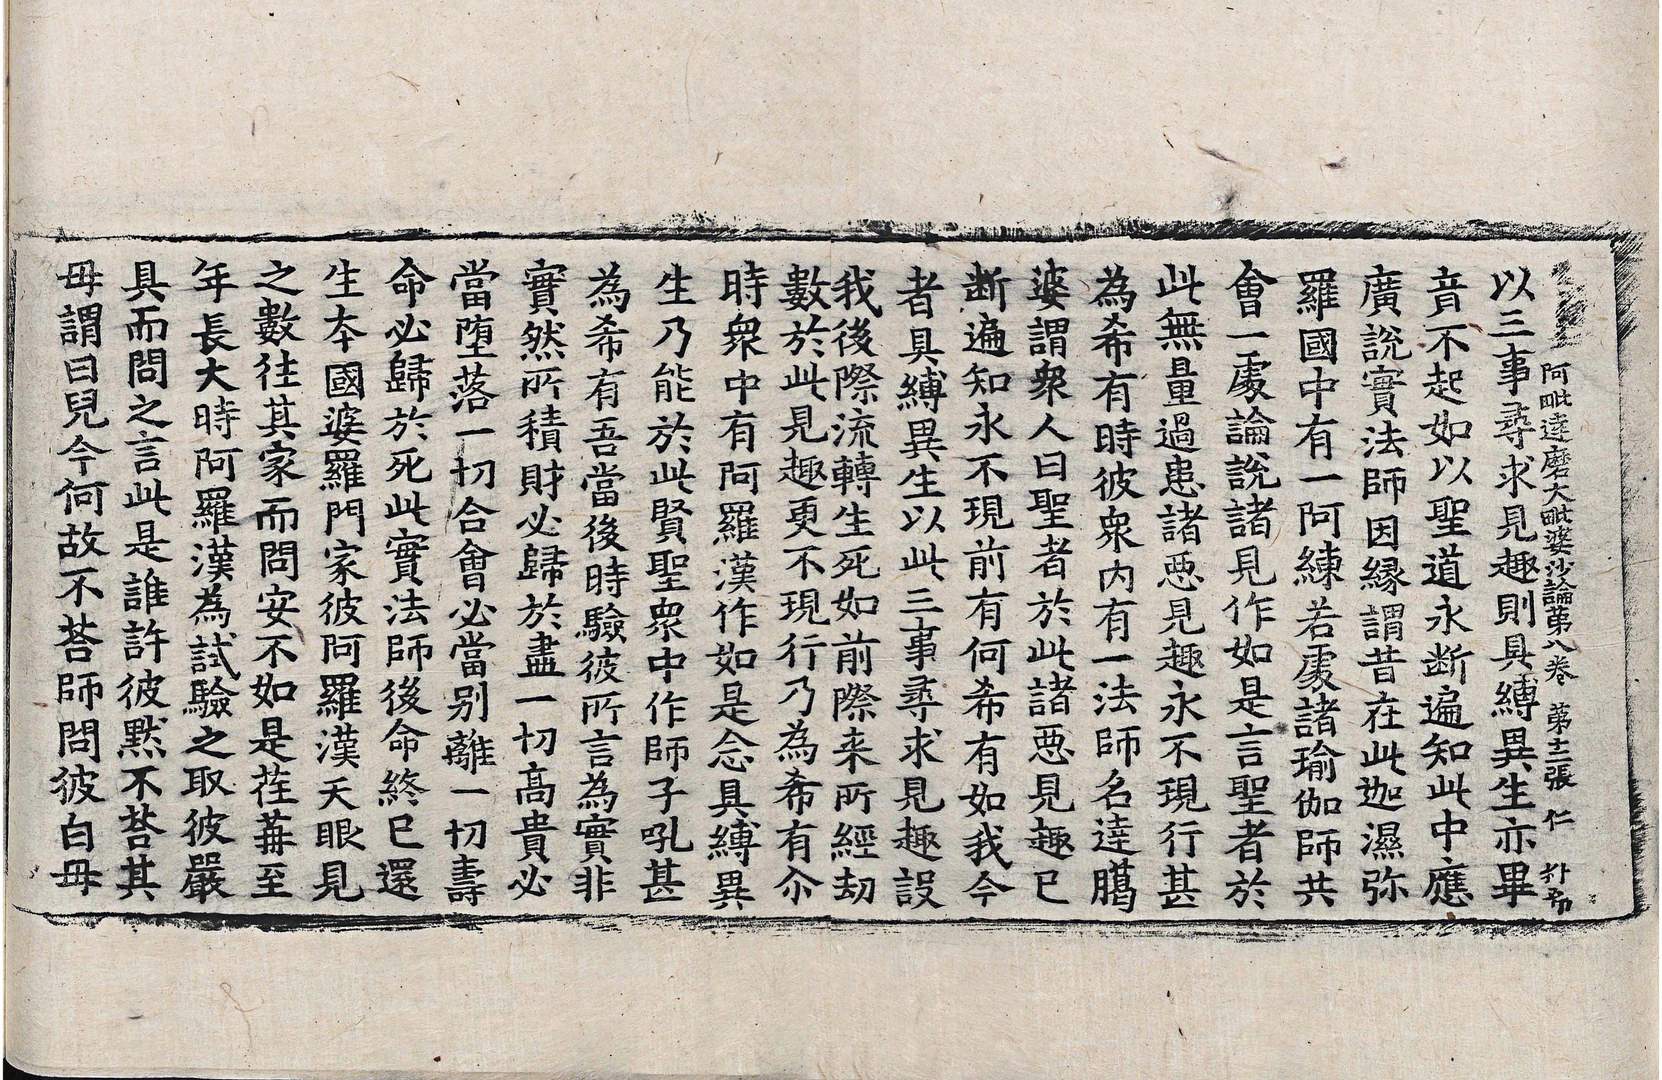 阿毗達磨大毗婆沙論第八卷　第十二張　仁
以三事尋求見趣則具縛異生亦畢
音不起如以聖道永断遍知此中應
廣說實法師因縁謂昔在此迦濕弥
羅國中有一阿練若處諸瑜伽師共
會一處論說諸見作如是言聖者於
此無量過患諸惡見趣永不現行甚
為希有時彼衆内有一法師名達臈
婆謂衆人曰聖者於此諸惡見趣已
断遍知永不現前有何希有如我今
者具縛異生以此三事尋求見趣設
我後際流轉生死如前際来所經劫
數於此見趣更不現行乃為希有尒
時衆中有阿羅漢作如是念具縛異
生乃能於此賢聖衆中作師子吼甚
為希有吾當後時驗彼所言為實非
實然所積財必歸於盡一切高貴必
當墮落一切合會必當别離一切壽
命必歸於死此實法師後命終已還
生本國婆羅門家彼阿羅漢天眼見
之數往其家而問安不如是荏苒至
年長大時阿羅漢為試驗之取彼嚴
具而問之言此是誰許彼默不荅其
母謂曰兒今何故不荅師問彼白母